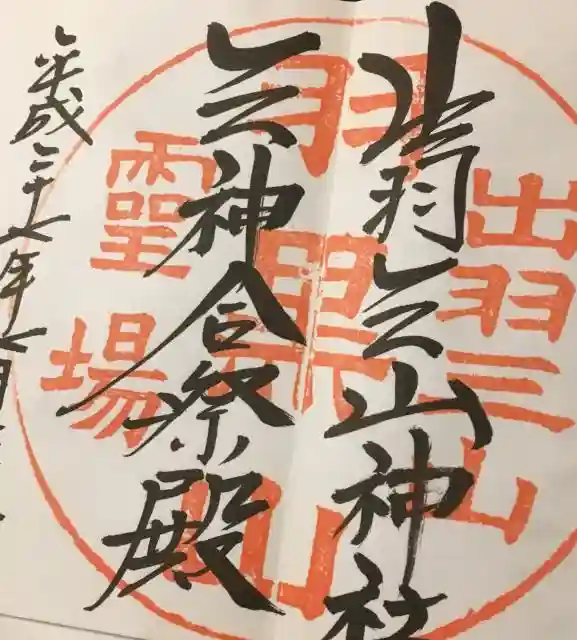 出羽三山神社
三神合祭殿
平成二十七年七月
出羽三山
羽黒山
霊場